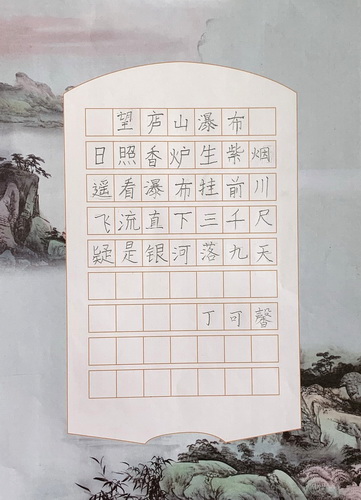 望庐山瀑布
日照香炉生紫烟
遥看瀑布挂前川
飞流直下三千尺
疑是银河落九天
丁可馨